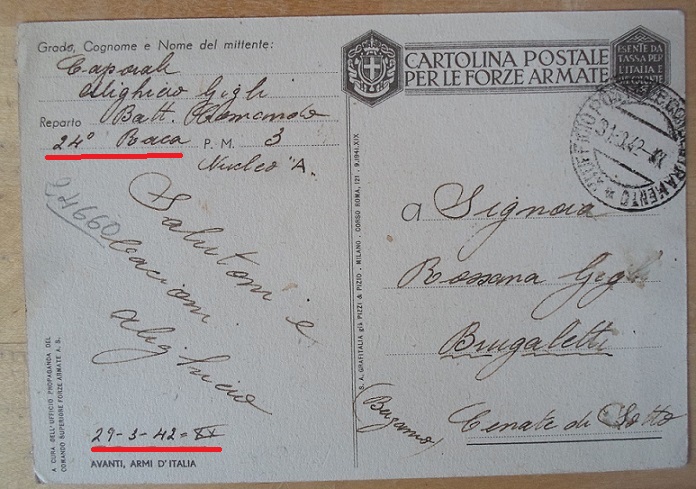 Grado, Cognome e Nome del mittente:
Caporale
Alighiero Gegli
Reparto Batt. Comando
24° Raca P. M. 3
Nucleo "A.
54660
Salutoni e
bacioni
Alighiero
29-3-42=XX
AVANTI, ARMI D'ITALIA
A CURA DELL'UFFICIO PROPAGANDA DEL
COMANDO SUPERIORE FORZE ARMATE A. S.
CARTOLINA POSTALE
PER LE FORZE ARMATE
ESENTE DA
TASSA PER
L'ITALIA E
S. A. GRAFITALIA già PIZZI & PIZIO - MILANO - CORSO ROMA, 121 - 9.1941.XIX
CONCENTRAMENTO
A Signora
Rossana Gegli
Brugaletti
(Bergamo) Cenate di Sotto